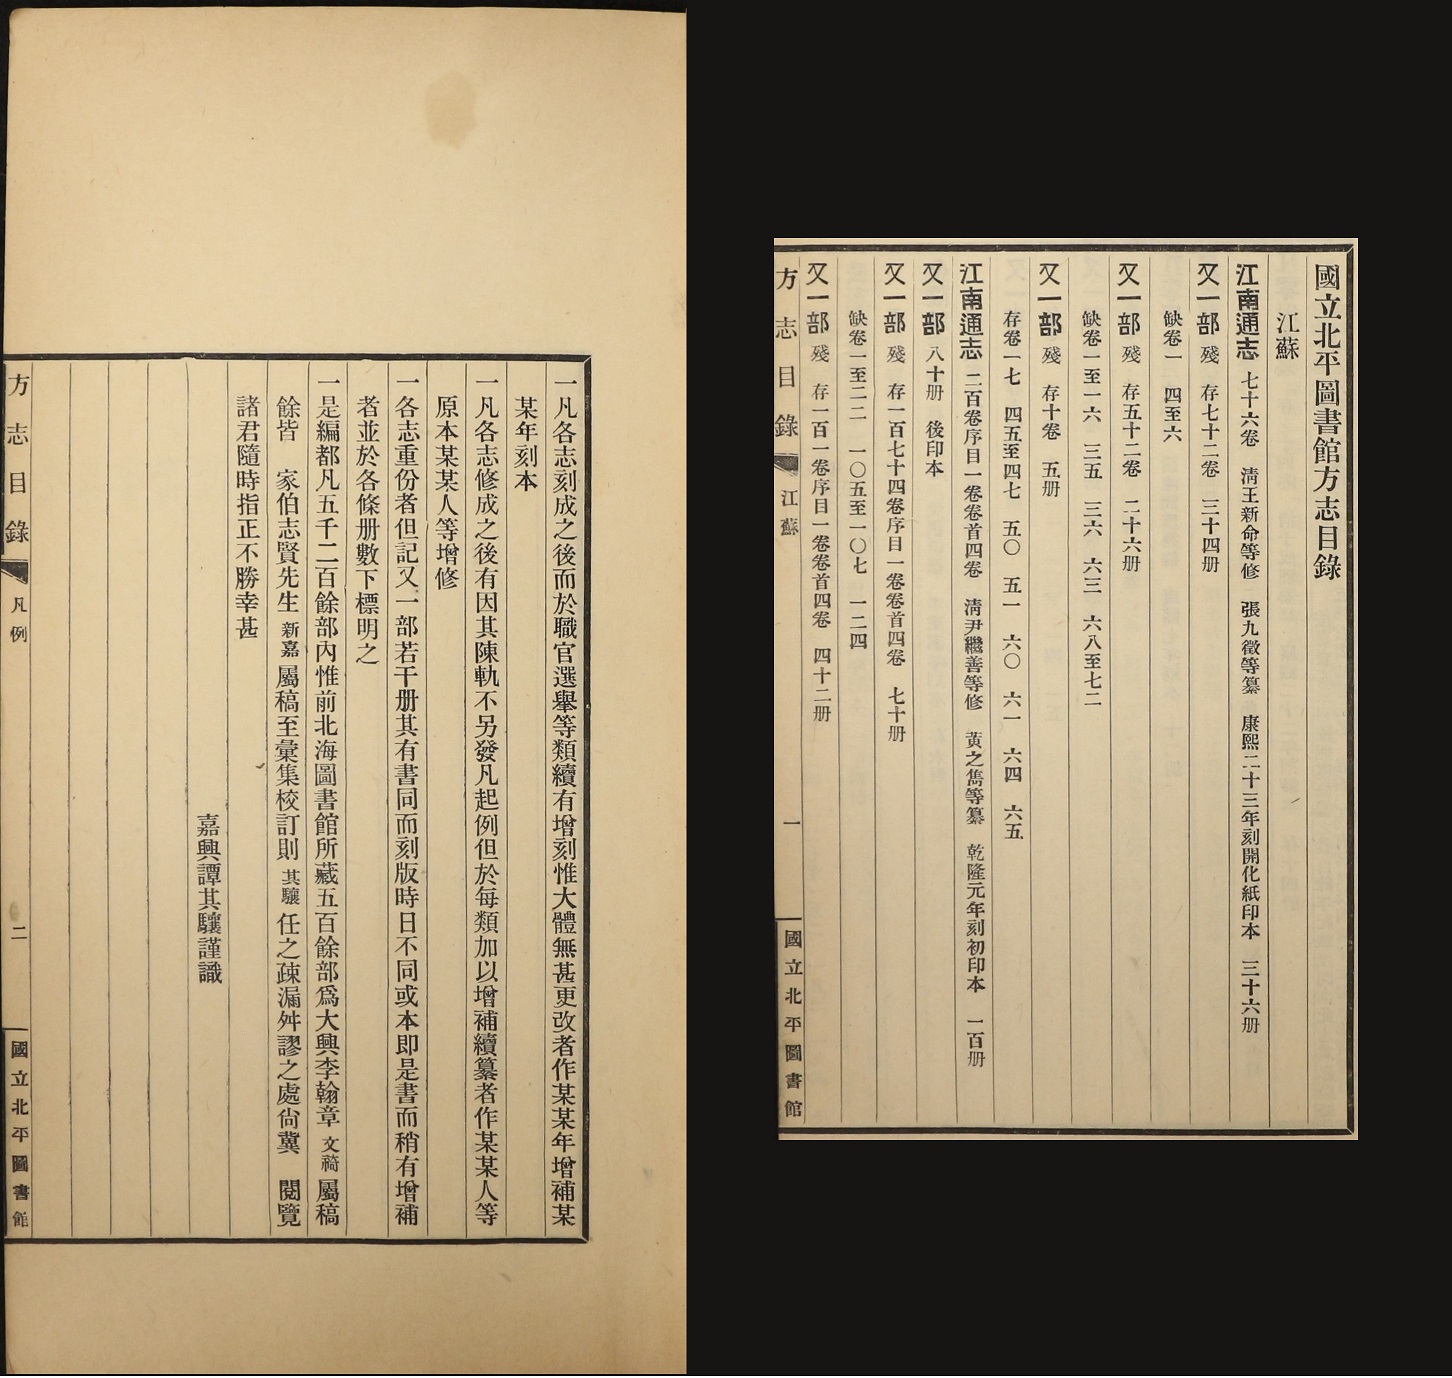 一凡各志刻成之後而於職官選舉等類續有增刻惟大體無甚更改者作某某年增補某
某年刻本
一凡各志修成之後有因其陳軌不另發凡起例但於每類加以增補續纂者作某某人等
原本某某人等增修
一各志重份者但記又一部若干册其有書同而刻版時日不同或本即是書而稍有增補
者並於各條册數下標明之
一是編都凡五千二百餘部內惟前北海圖書館所藏五百餘部爲大興李翰章文䄎屬稿
餘皆　家伯志賢先生新嘉屬稿至彙集校訂則其驤任之疎漏舛謬之處尙冀　閱覽
諸君隨時指正不勝幸甚
嘉興譚其驤謹識
方志目錄　凡例　二　國立北平圖書館
國立北平圖書館方志目錄
江蘇
江南通志　七十六卷　淸王新命等修　張九徵等纂　康熙二十三年刻開化紙印本　三十六册
又一部　殘　存七十二卷　三十四册
缺卷一　四至六
又一部　殘　存五十二卷　二十六册
缺卷一至一六　三五　三六　六三　六八至七二
又一部　殘　存十卷　五册
存卷一七　四五至四七　五〇　五一　六〇　六一　六四　六五
江南通志　二百卷序目一卷卷首四卷　淸尹繼善等修　黃之雋等纂　乾隆元年刻初印本　一百册
又一部　八十册　後印本
又一部　殘　存一百七十四卷序目一卷卷首四卷　七十册
缺卷一至二二　一〇五至一〇七　一二四
又一部　殘　存一百一卷序目一卷卷首四卷　四十二册
方志目錄　江蘇　一　國立北平圖書館